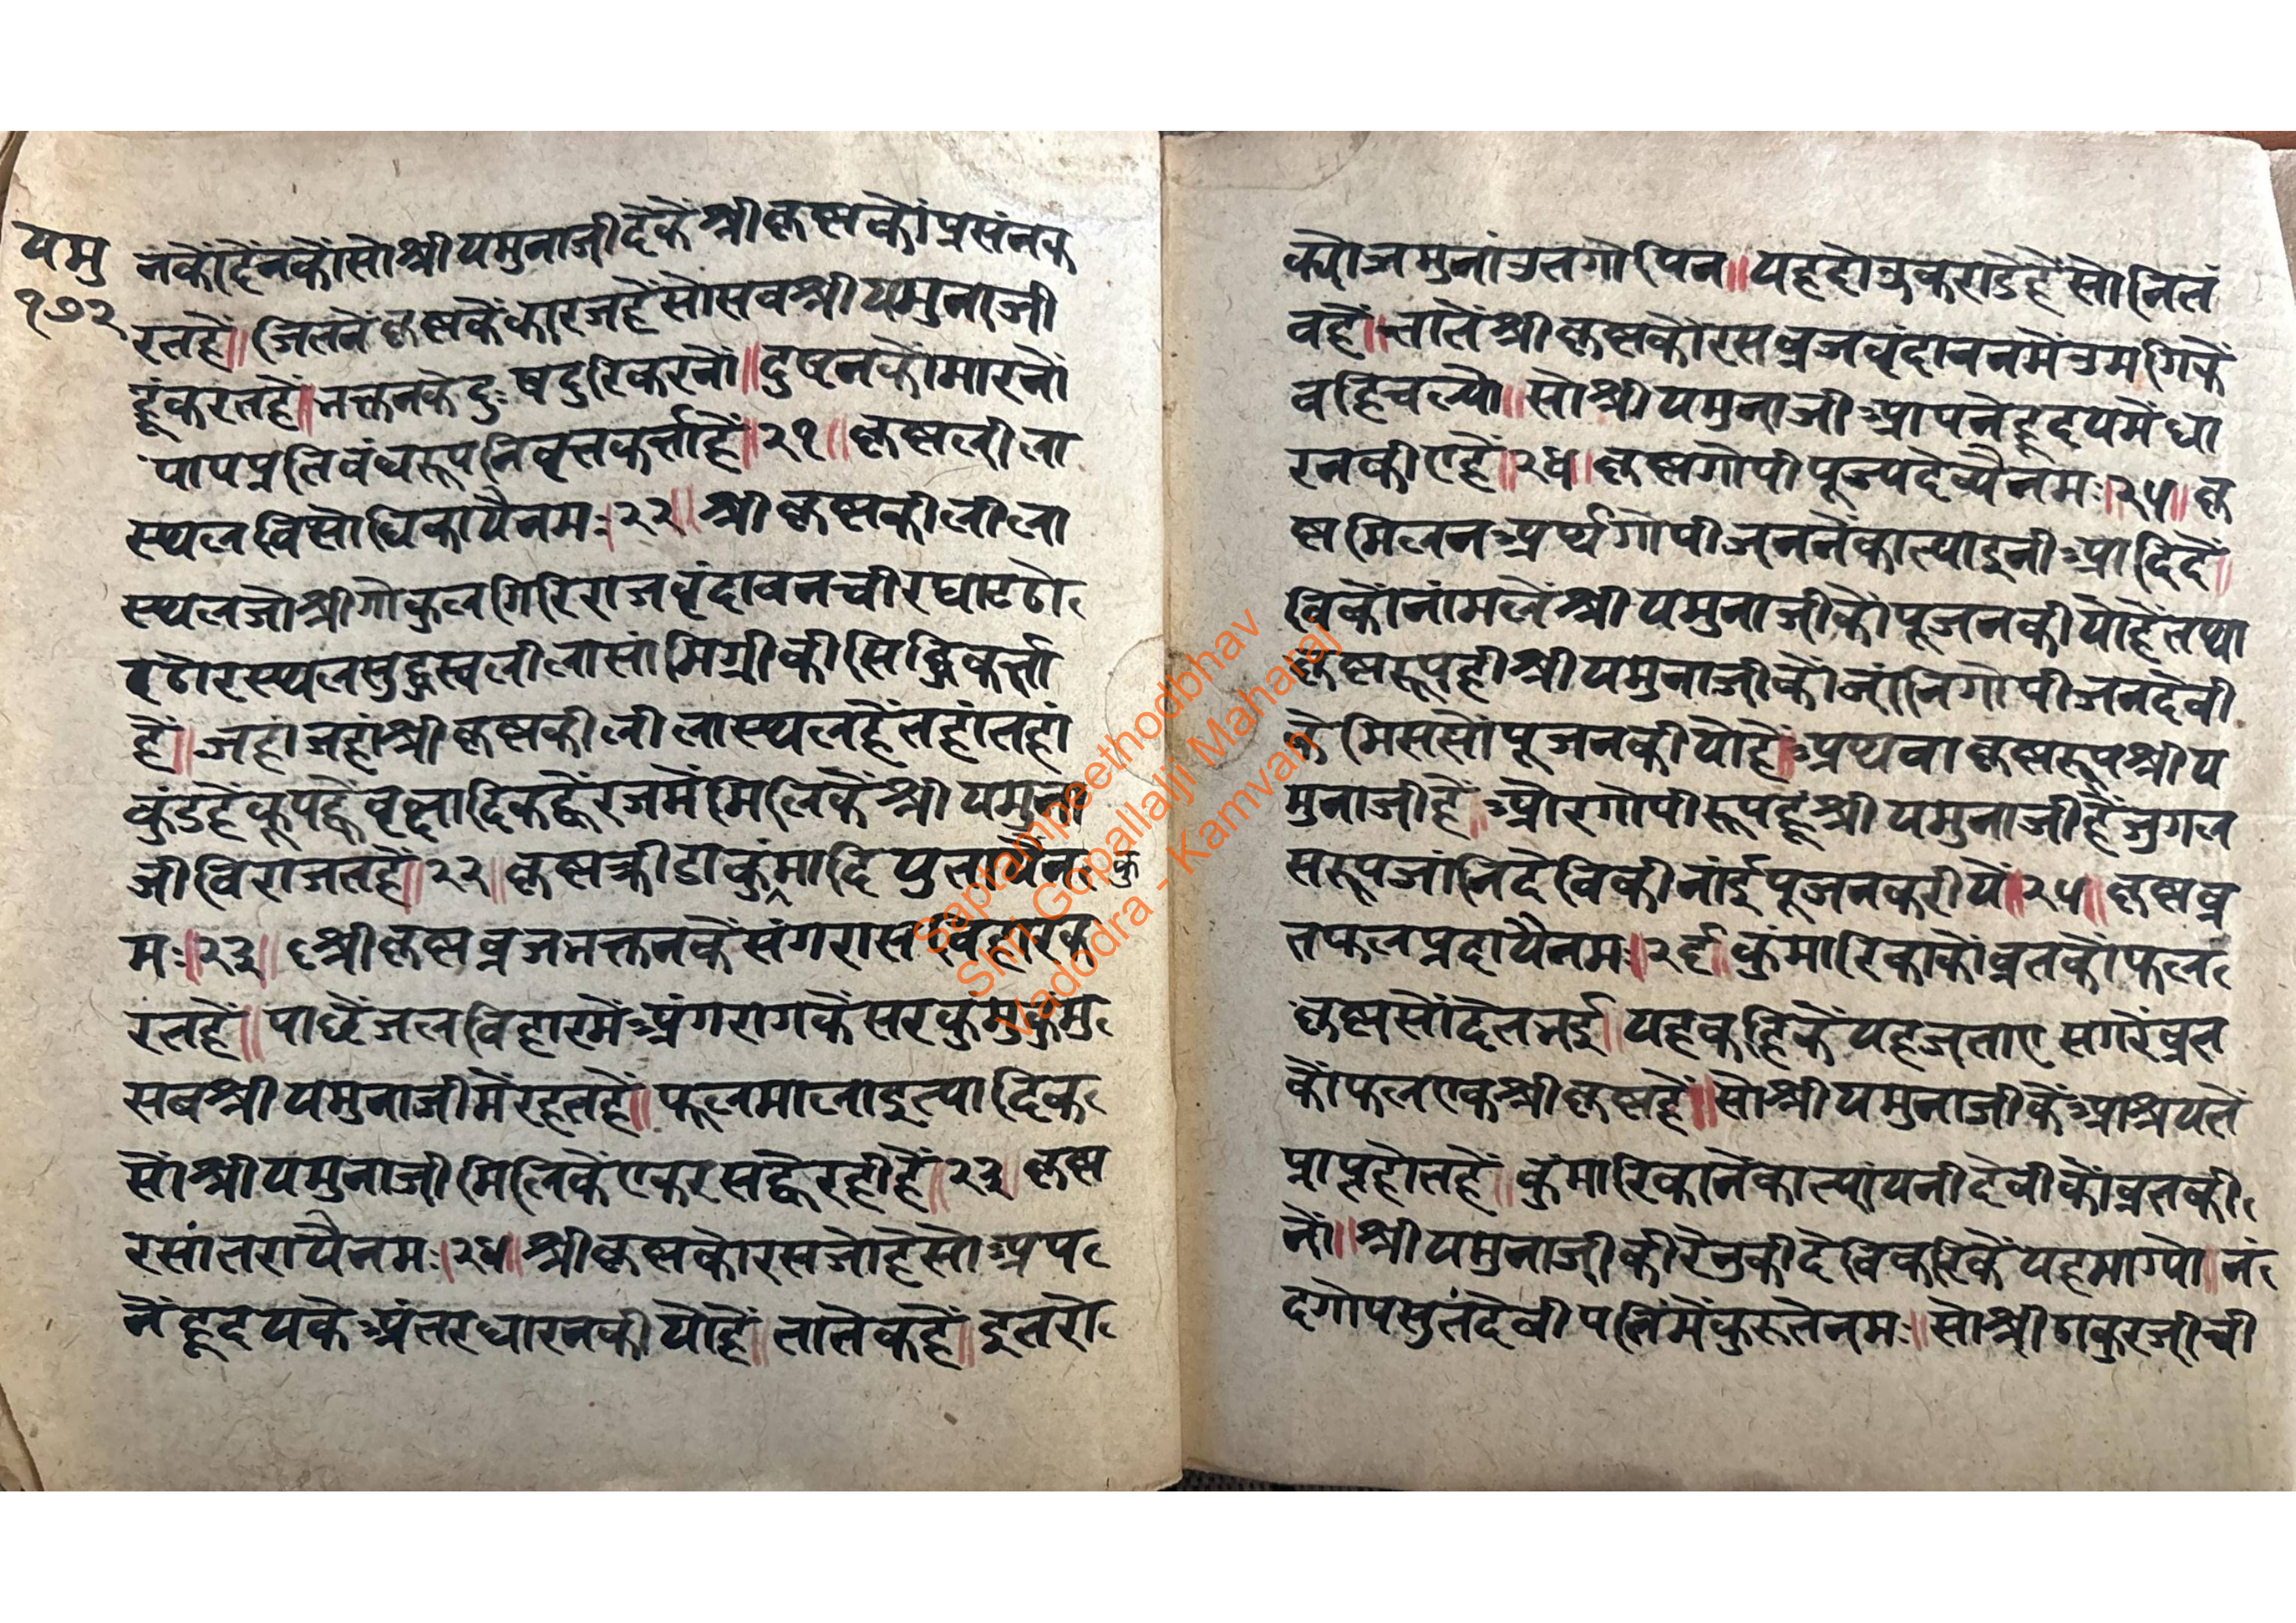 यमु
१७२
नकोंदैंनकोंसोश्रीयमुनाजीदैकैंश्रीकृष्णकोंप्रसंनक
रतहैं॥जितनेंकृष्णकैंकारजहैंसोसवश्रीयमुनाजी
हूंकरतहैं॥भक्तनकेदुःषदुरिकरनों॥दुष्टनकोंमारनों
पापप्रतिवंधरूपनिवृत्तकर्त्ताहैं॥२१॥कृष्णलीला
स्थलविसोधिकायैनमः।२२॥श्रीकृष्णकीलीला
स्थलजोश्रीगोकुलगिरिराजवृंदावनचीरघाटठो
रठोरस्थलसुद्धस्वलीलासांमिग्रीकीसिद्धिकर्त्ता
हैं॥जहांजहांश्रीकृष्णकीलीलास्थलहैंतहांतहां
कुंडहैंकूपह्वैंवृक्षादिकह्वैंरजमेंमिलिकैंश्रीयमुना
जीविराजतहैं॥२२॥कृष्णक्रीडाकुंमादियुतायैन
कु
मः॥२३॥श्रीकृष्णव्रजभक्तनकैंसंगरासविहारक
रतहैं॥पाछैंजलविहारमेंअंगरागकेसरकुंमुकुंमु
सबश्रीयमुनाजीमेंरहतहैं॥फुलमालाइत्यादिक
सोंश्रीयमुनाजीमिलिकेंएकरसह्वैरहीहैं॥२३॥कृष्ण
रसांतरायैनमः।२४॥श्रीकृष्णकोरसजोहैसोअप
नेंहृदयकेअंतरधारनकीयोहैं॥तातेकहैं॥इतरो
क्योजमुनांउतगोपिन॥यहदोऊकराडेहैंसोनित
वहैं॥तातेंश्रीकृष्णकोरसव्रजवृंदावनमेंउमगिकैं
वहिचल्यो॥सोश्रीयमुनाजीआपनेहृदयमेंधा
रनकीएहैं॥२४॥कृष्णगोपीपूज्यदेव्यैनमः।२५॥कृ
ष्णमिलनअर्थगोपीजननेंकात्याइनीआदिदे॥
विकोंनांमलेंश्रीयमुनाजीकोंपूजनकीयोहैंतथा
कृष्णरूपहीश्रीयमुनाजीकोंजांनिगोपीजनदेवी
के मिससोंपूजनकीयोहैं॥अथवाकृष्णरूपश्रीय
मुनाजीहैं॥औरगोपीरूपहूंश्रीयमुनाजीहैंजुगल
सरूपजांनिदेविकीनांईपूजनकरीयें॥२५॥कृष्णव्र
तफलप्रदायैनमः।२६॥कुंमारिकाकोंव्रतकोंफल
कृष्णसोंदेतभई॥यहकहिकैंयहजताएसगरेंव्रत
कोंफलएकश्रीकृष्णहैं॥सोश्रीयमुनाजीकैंआश्रयतें
प्राप्तहोतहैं॥कुंमारिकानेंकात्यांयनीदेवीकोंव्रतकी
नों॥श्रीयमुनाजीकीरेनुकीदेविकरिकैंयहमाग्यो॥नं
दगोपसुतंदेवीपतिंमेंकुरुतेनमः॥सोश्रीठाकुरजीची
Saptampeethodbhav
Shri Gopallalji Maharaj
Vadodra - Kamvan